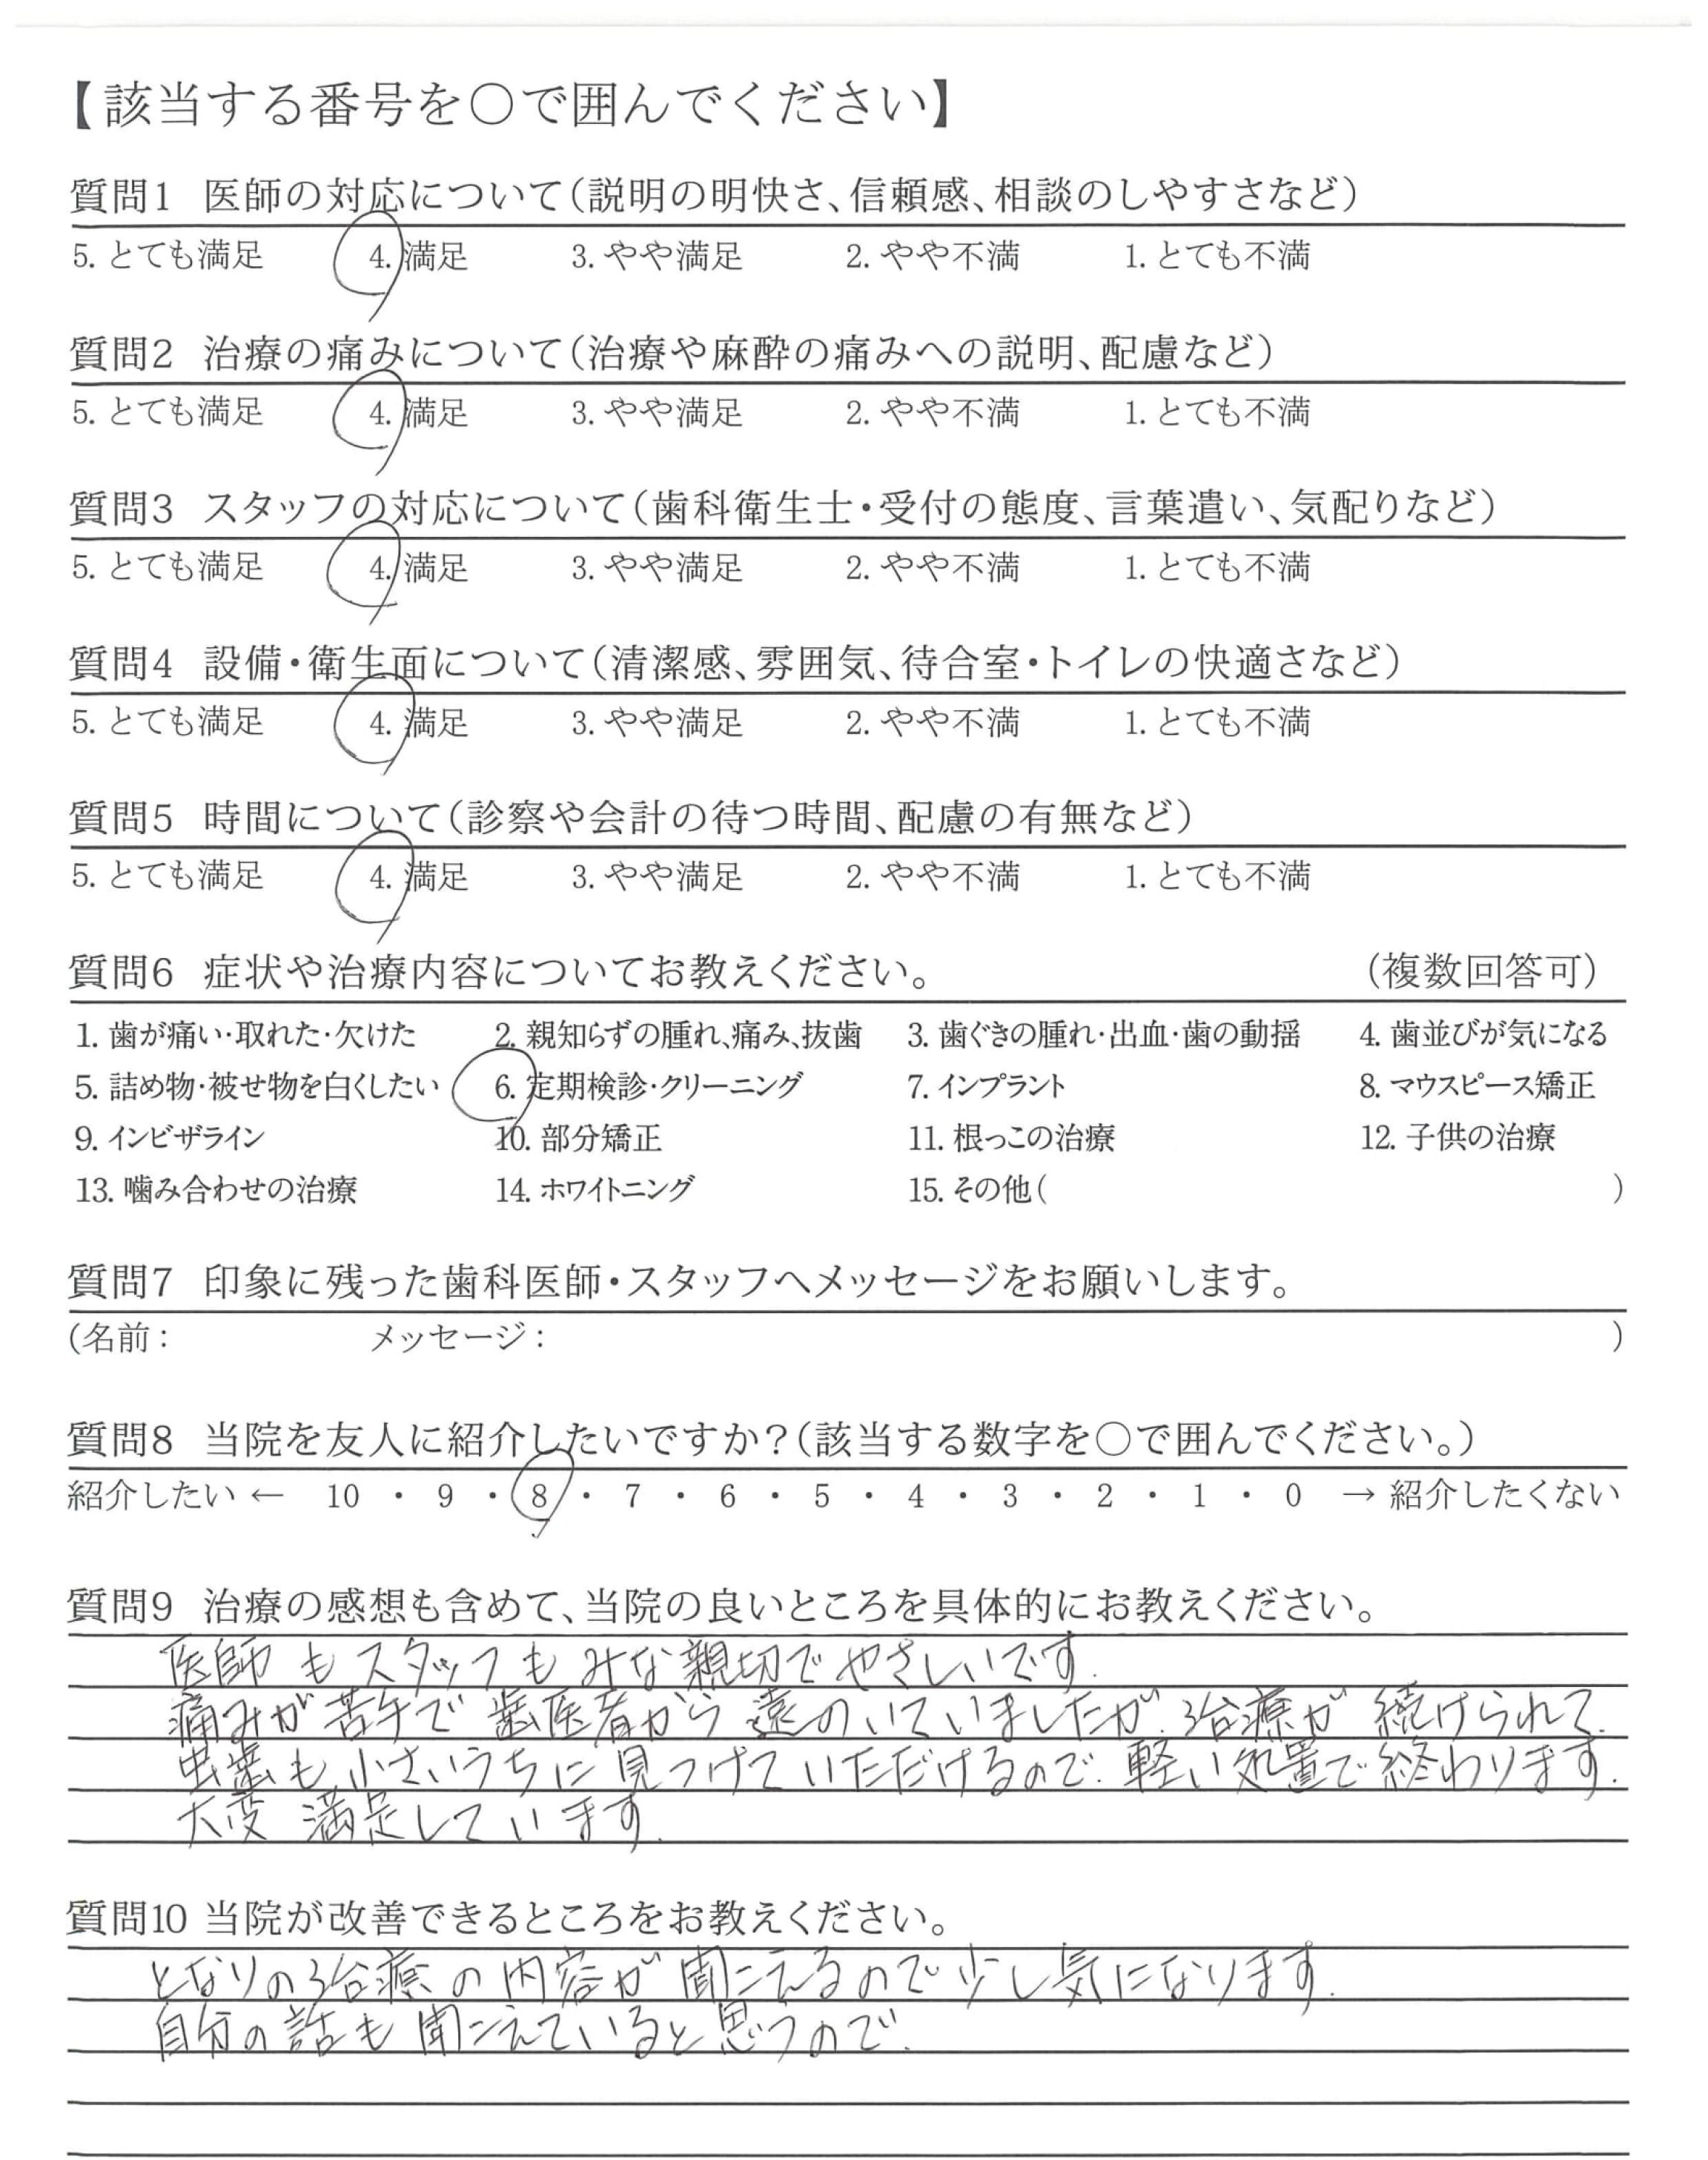 【該当する番号を〇で囲んでください】
質問1 医師の対応について(説明の明快さ、信頼感、相談のしやすさなど)
5. とても満足 4. 満足 3. やや満足 2. やや不満 1. とても不満
質問2 治療の痛みについて(治療や麻酔の痛みへの説明、配慮など)
5. とても満足 4. 満足 3. やや満足 2. やや不満 1. とても不満
質問3 スタッフの対応について(歯科衛生士・受付の態度、言葉遣い、気配りなど)
5. とても満足 4. 満足 3. やや満足 2. やや不満 1. とても不満
質問4 設備・衛生面について(清潔感、雰囲気、待合室・トイレの快適さなど)
5. とても満足 4. 満足 3. やや満足 2. やや不満 1. とても不満
質問5 時間について(診察や会計の待つ時間、配慮の有無など)
5. とても満足 4. 満足 3. やや満足 2. やや不満 1. とても不満
質問6 症状や治療内容についてお教えください。 (複数回答可)
1. 歯が痛い・取れた・欠けた 2. 親知らずの腫れ、痛み、抜歯 3. 歯ぐきの腫れ・出血・歯の動揺 4. 歯並びが気になる
5. 詰め物・被せ物を白くしたい 6. 定期検診・クリーニング 7. インプラント 8. マウスピース矯正
9. インビザライン 10. 部分矯正 11. 根っこの治療 12. 子供の治療
13. 噛み合わせの治療 14. ホワイトニング 15. その他( )
質問7 印象に残った歯科医師・スタッフへメッセージをお願いします。
(名前: メッセージ: )
質問8 当院を友人に紹介したいですか?(該当する数字を〇で囲んでください。)
紹介したい ← 10 ・ 9 ・ 8 ・ 7 ・ 6 ・ 5 ・ 4 ・ 3 ・ 2 ・ 1 ・ 0 → 紹介したくない
質問9 治療の感想も含めて、当院の良いところを具体的にお教えください。
医師もスタッフもみな親切でやさしいです.
痛みが苦手で歯医者から遠のいていましたが、治療が続けられて.
虫歯も小さいうちに見つけていただけるので、軽い処置で終わります.
大変満足しています.
質問10 当院が改善できるところをお教えください。
となりの治療の内容が聞こえるので少し気になります.
自分の話も聞こえていると思うので.